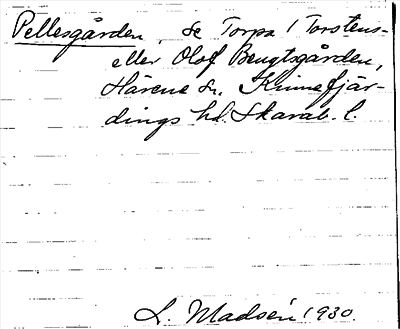 Pellesgården, se Torpa 1 Torstens-
eller Olof Bengtsgården,
Härene sn. Kinnefjär-
dings hd. Skarab. l.
L. Madsén 1930.